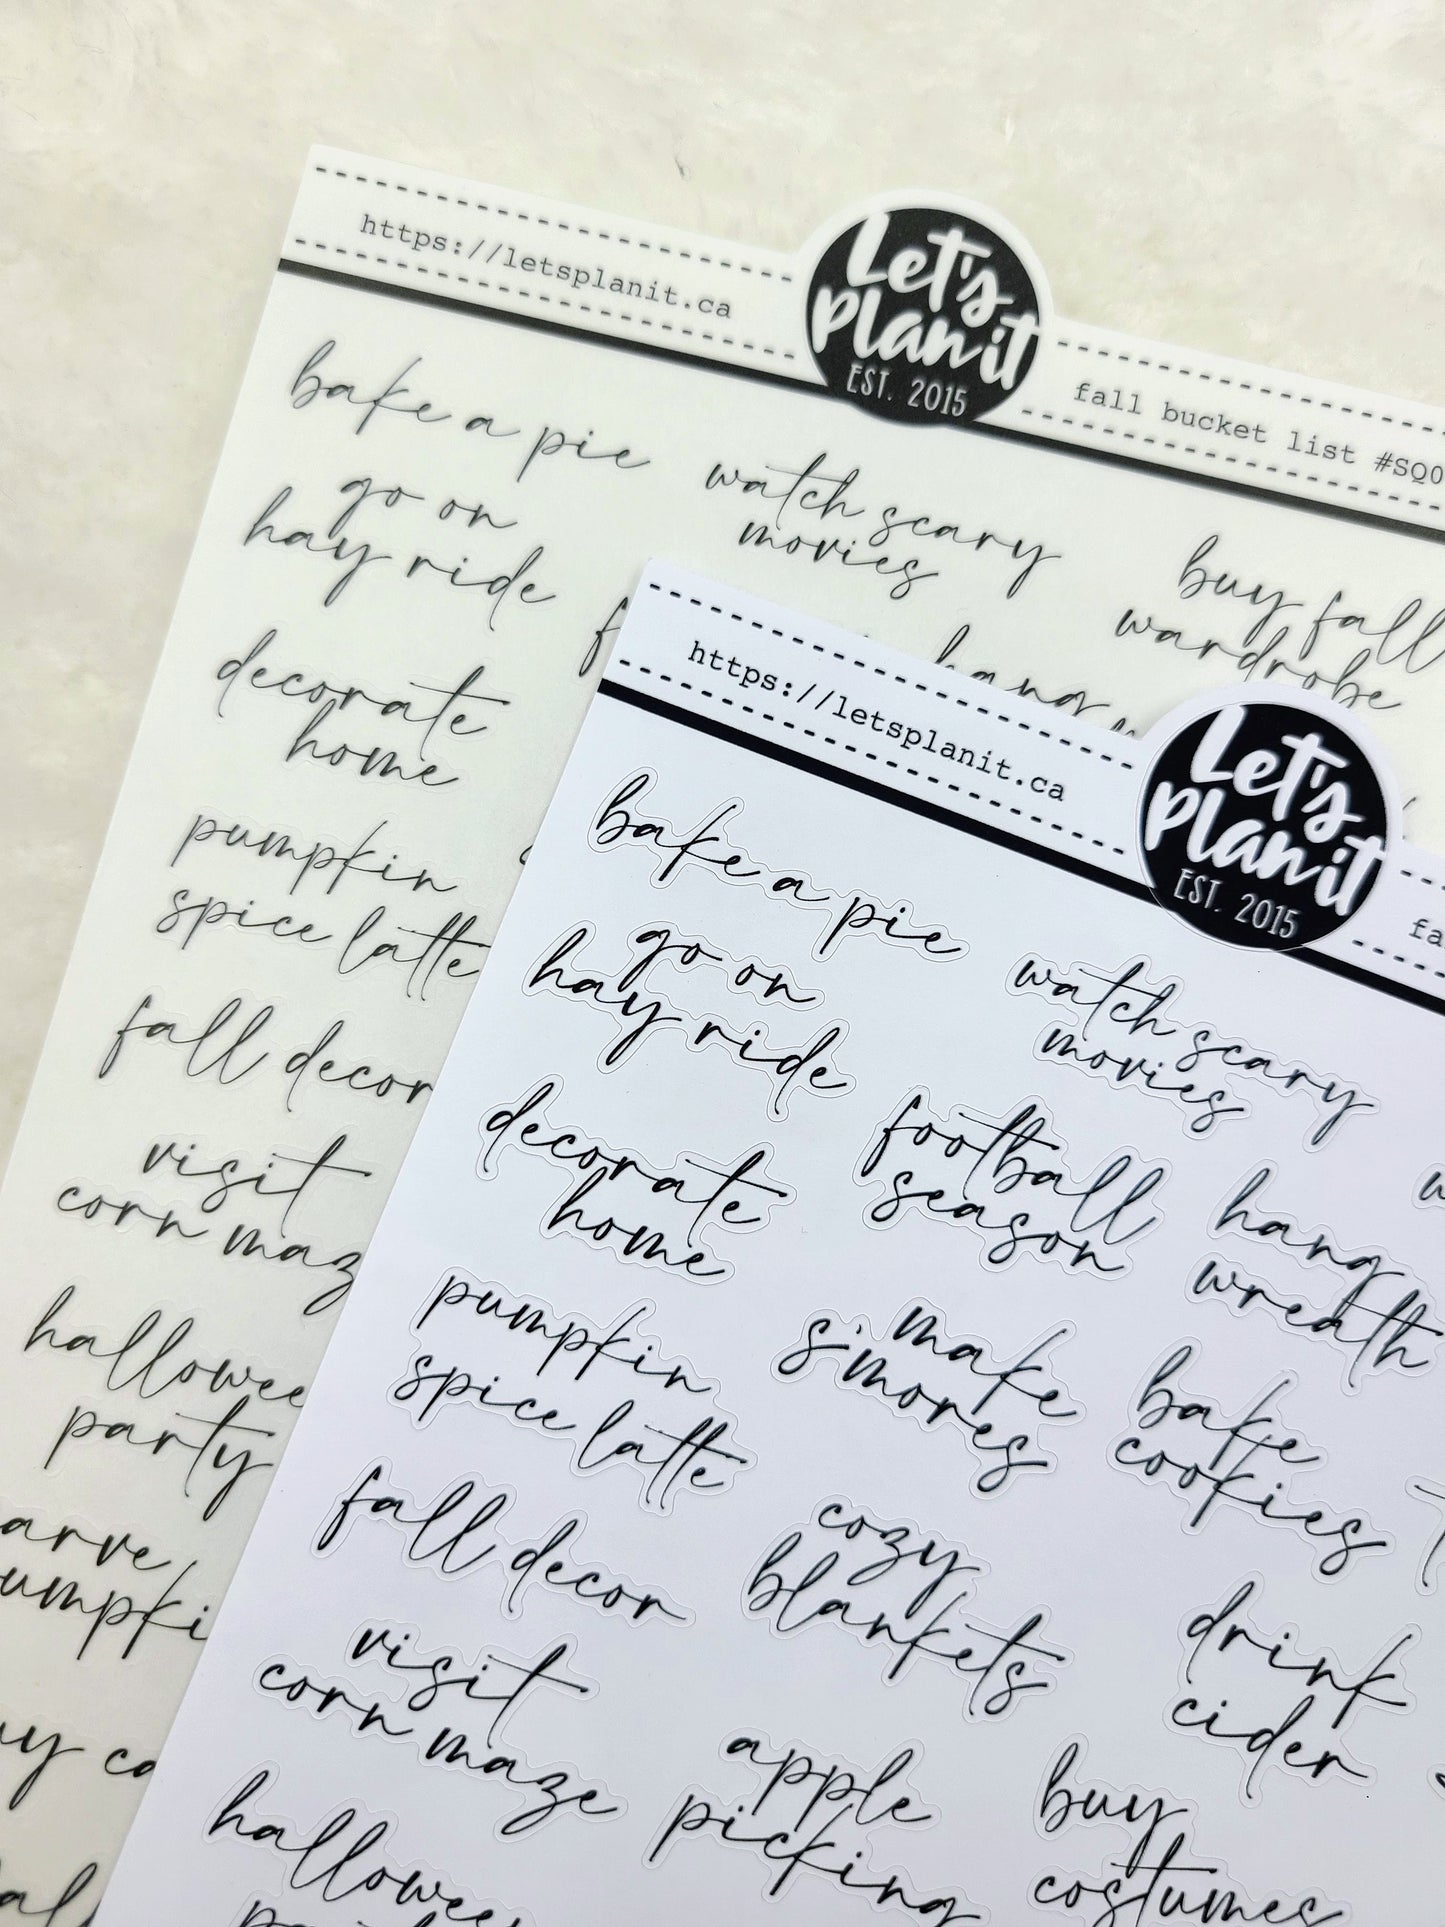 https://letsplanit.ca
Let's
Plan it
EST. 2015
fall bucket list #SQ0
bake a pie
watch scary
movies
buy fall
wardrobe
go on
hay ride
f
hang
decorate
home
pumpkin
spice latte
fall decor
visit
corn maz
hallowee
party
arve
umpki
uy co
https://letsplanit.ca
Let's
Plan it
EST. 2015
fa
bake a pie
watch scary
movies
go on
hay ride
football
season
hang
wreath
decorate
home
make
s'mores
bake
cookies
pumpkin
spice latte
cozy
blankets
drink
cider
fall decor
visit
corn maze
apple
picking
buy
costumes
hallowee